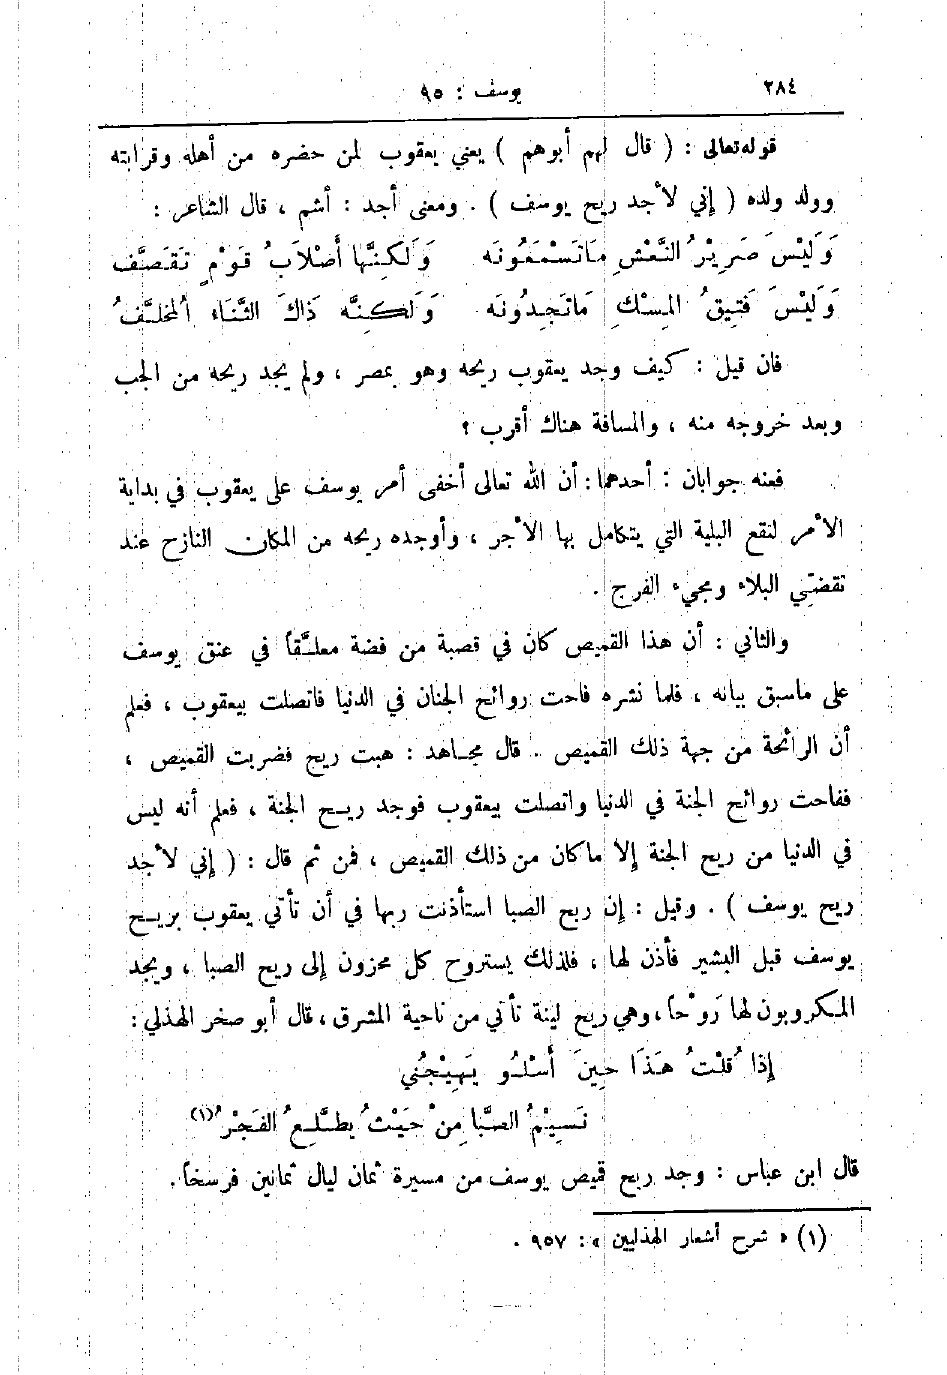 ٢٨٤
يوسف : ٩٥
قوله تعالى : ( قال لهم أبوهم ) يعني يعقوب لمن حضره من أهله وقرابته
وولد ولده ( إني لأجد ريح يوسف ) . ومعنى أجد : أشم ، قال الشاعر :
وَلَيْسَ صَرِيْرُ النَّعْشِ مَا تَسْمَعُونَه وَلَكِنَّها أَصْلَابُ قَوْمٍ تَقَصَّفُ
وَلَيْسَ فَتِيقُ المِسْكِ مَا تَجِدُونَه وَلكِنَّه ذَاكَ الثَّنَاء المُخَلَّفُ
فان قيل : كيف وجد يعقوب ريحه وهو بمصر ، ولم يجد ريحه من الجب
وبعد خروجه منه ، والمسافة هناك أقرب ؟
فعنه جوابان : أحدهما : أن الله تعالى أخفى أمر يوسف على يعقوب في بداية
الأمر لتقع البلية التي يتكامل بها الأجر ، وأوجده ريحه من المكان النازح عند
تقضِّي البلاء ومجيء الفرج .
والثاني : أن هذا القميص كان في قصبة من فضة معلَّقاً في عنق يوسف
على ما سبق بيانه ، فلما نشره فاحت روائح الجنان في الدنيا فاتصلت بيعقوب ، فعلم
أن الرائحة من جهة ذلك القميص . قال مجاهد : هبت ريح فضربت القميص ،
ففاحت روائح الجنة في الدنيا واتصلت بيعقوب فوجد ريح الجنة ، فعلم أنه ليس
في الدنيا من ريح الجنة إلا ما كان من ذلك القميص ، فمن ثم قال : ( إني لأجد
ريح يوسف ) . وقيل : إن ريح الصبا استأذنت ربها في أن تأتي يعقوب بريح
يوسف قبل البشير فأذن لها ، فلذلك يستروح كل محزون إلى ريح الصبا ، ويجد
المكروبون لها رَوْحاً ، وهي ريح لينة تأتي من ناحية المشرق ، قال أبو صخر الهذلي :
إذا قُلْتُ هَذَا حِينَ أَسْلُو يَهِيْجُني
نَسِيْمُ الصَّبَا مِنْ حَيْثُ يطَّلِعُ الفَجْرُ(١)
قال ابن عباس : وجد ريح قميص يوسف من مسيرة ثمان ليال ثمانين فرسخاً .
(١) « شرح أشعار الهذليين » : ٩٥٧ .